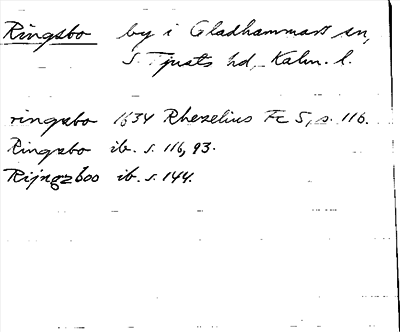 Ringsbo by i Gladhammars sn,
S. Tjusts hd, Kalm. l.
ringsbo 1634 Rhezelius Fc 5, s. 116.
Ringsbo ib. s. 116, 93.
Rijngzboo ib. s. 144.